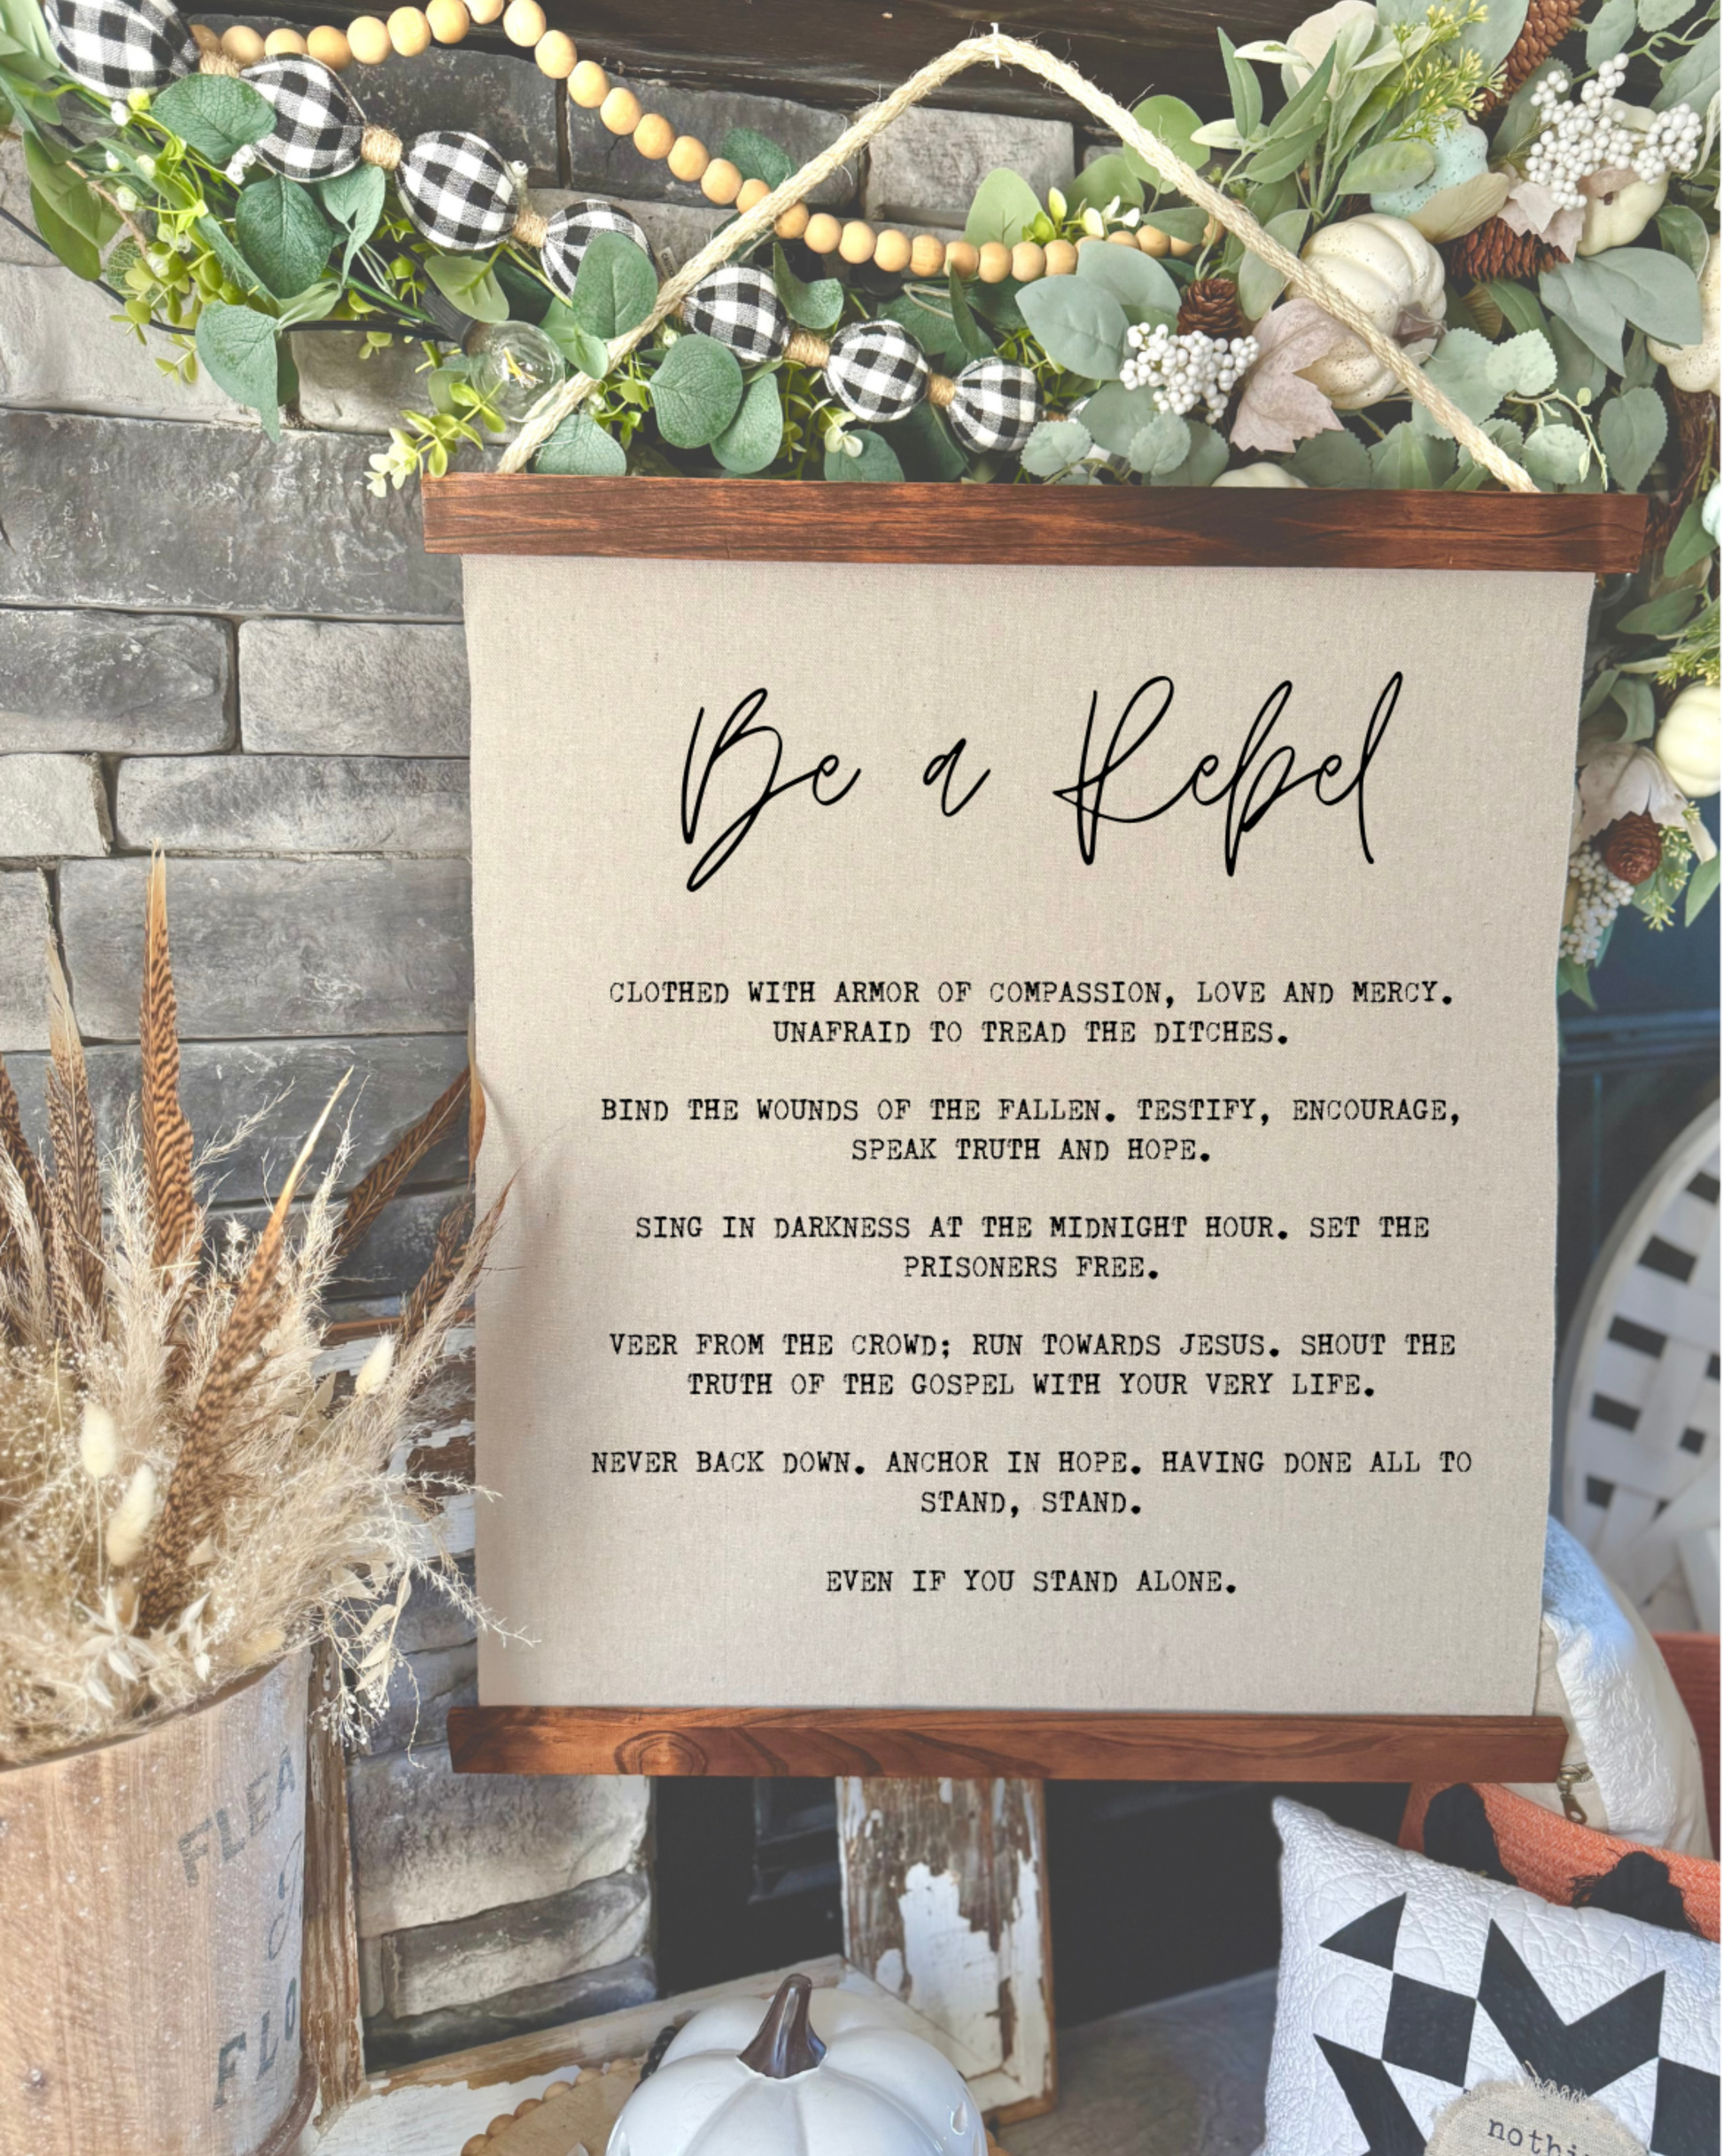 Be a Rebel
CLOTHED WITH ARMOR OF COMPASSION, LOVE AND MERCY.
UNAFRAID TO TREAD THE DITCHES.
BIND THE WOUNDS OF THE FALLEN. TESTIFY, ENCOURAGE,
SPEAK TRUTH AND HOPE.
SING IN DARKNESS AT THE MIDNIGHT HOUR. SET THE
PRISONERS FREE.
VEER FROM THE CROWD; RUN TOWARDS JESUS. SHOUT THE
TRUTH OF THE GOSPEL WITH YOUR VERY LIFE.
NEVER BACK DOWN. ANCHOR IN HOPE. HAVING DONE ALL TO
STAND, STAND.
EVEN IF YOU STAND ALONE.
FLEA